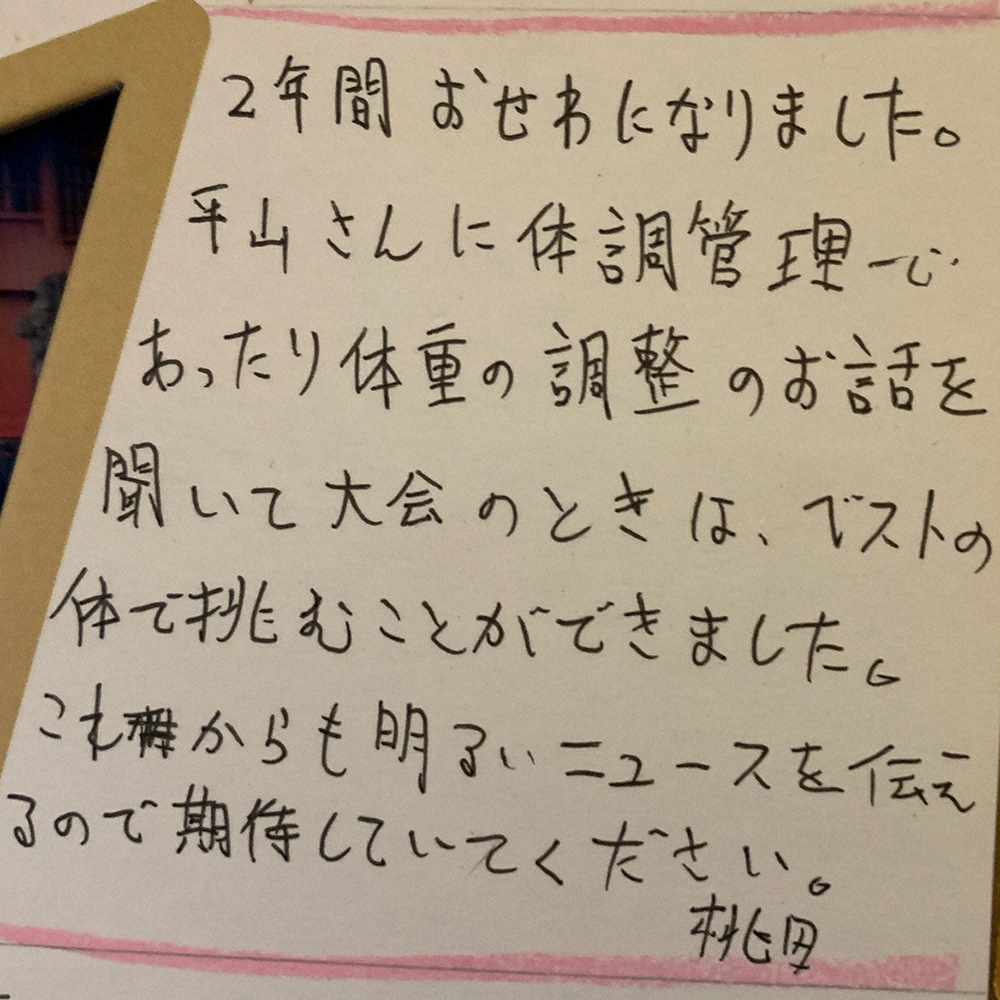 2年間おせわになりました。
平山さんに体調管理で
あったり体重の調整のお話を
聞いて大会のときは、ベストの
体で挑むことができました。
これからも明るいニュースを伝え
るので期待していてください。
桃田